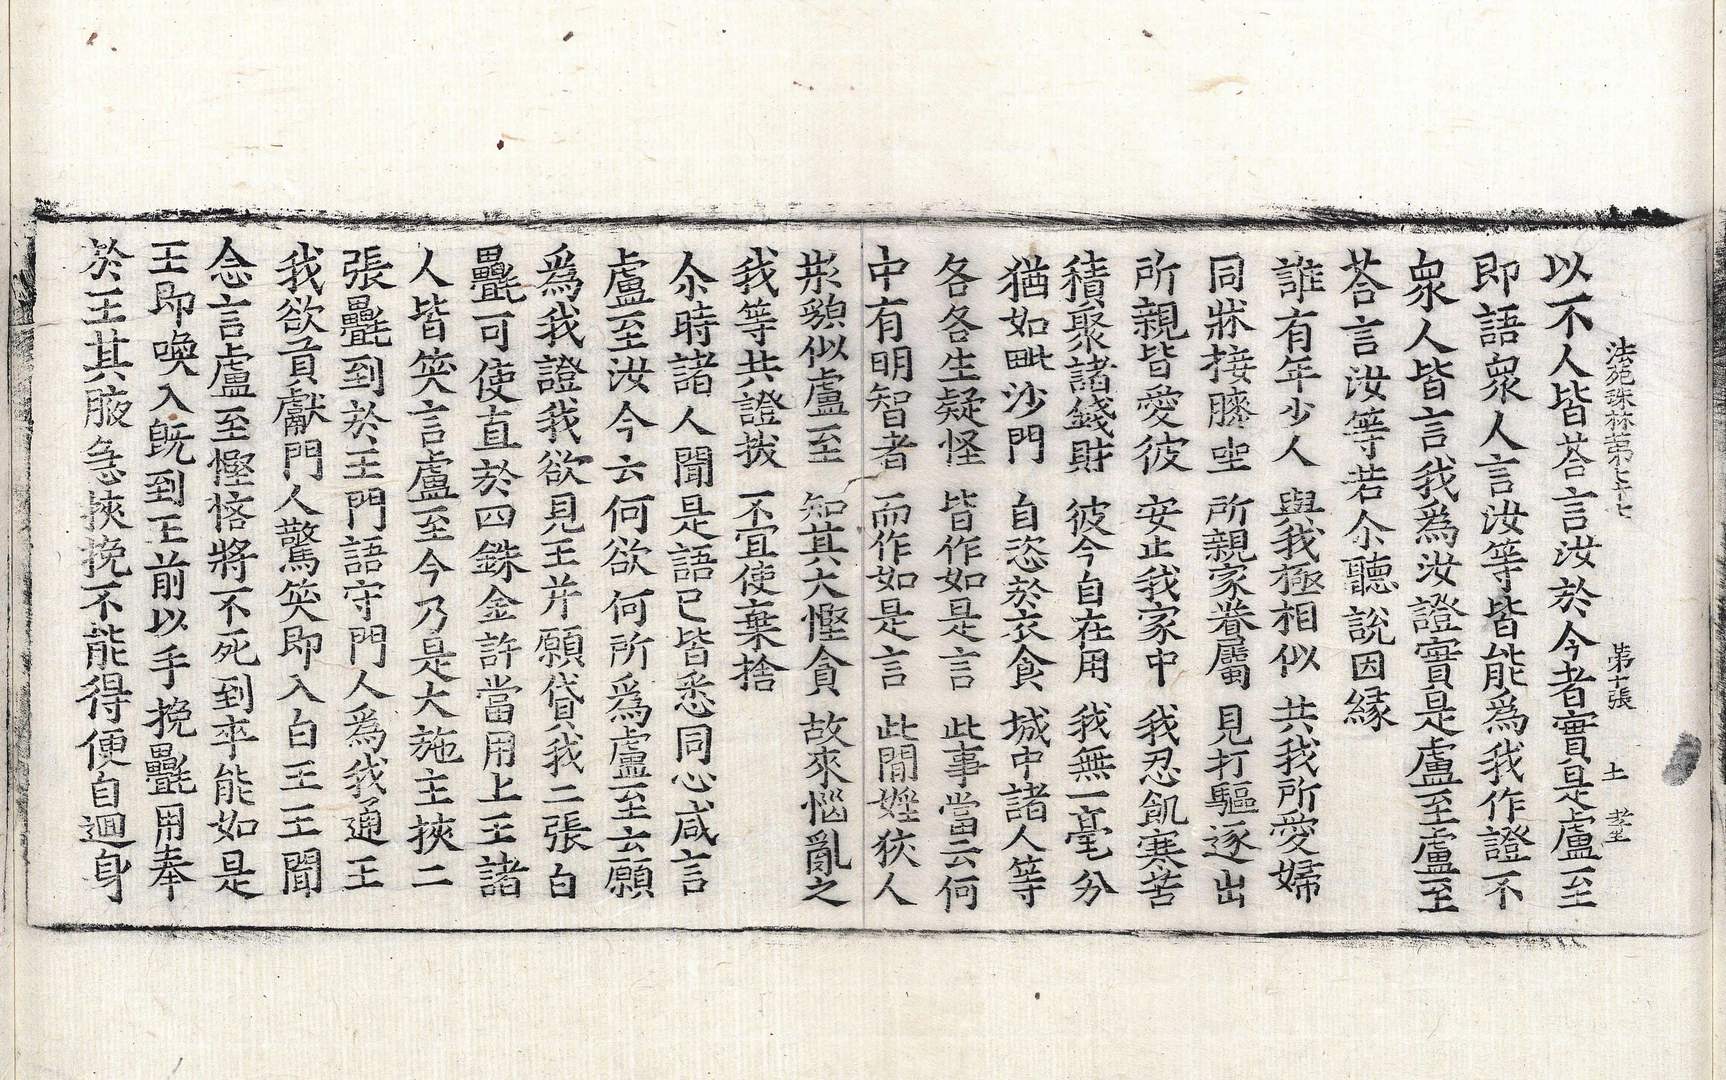 法苑珠林第七十七 第十張 土
以不人皆荅言汝於今者實是盧至
即語衆人言汝等皆能爲我作證不
衆人皆言我爲汝證實是盧至盧至
荅言汝等若尒聽說因緣
誰有年少人 與我極相似 共我所愛婦
同牀接膝坐 所親家眷屬 見打驅逐出
所親皆愛彼 安止我家中 我忍飢寒苦
積聚諸錢財 彼今自在用 我無一毫分
猶如毗沙門 自恣於衣食 城中諸人等
各各生疑怪 皆作如是言 此事當云何
中有明智者 而作如是言 此閒婬狹人
形貌似盧至 知其大慳貪 故來惱亂之
我等共證拔 不宜使棄捨
尒時諸人聞是語已皆悉同心咸言
盧至汝今云何欲何所爲盧至云願
爲我證我欲見王并願貸我二張白
㲲可使直於四銖金許當用上王諸
人皆笑言盧至今乃是大施主挾二
張㲲到於王門語守門人爲我通王
我欲貢獻門人驚笑即入白王王聞
念言盧至慳悋將不死到卒能如是
王即喚入旣到王前以手挽㲲用奉
於王其腋急挾挽不能得便自迴身